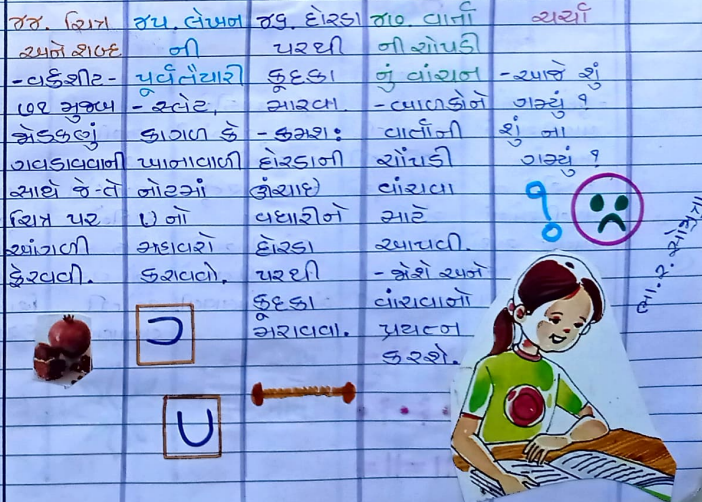 ૪૪. ચિત્ર
અને શબ્દ
-વર્કશીટ-
૭૧ મુજબ
જોડકણું
ગવડાવવાની
સાથે જે-તે
ચિત્ર પર
આંગળી
ફેરવવી.
૪૫. લેખન
ની
પૂર્વતૈયારી
- સ્લેટ,
કાગળ કે
ખાનાવાળી
નોટમાં
U નો
મહાવરો
કરાવવો.
૪૬. દોરડા
પરથી
કૂદકા
મારવા.
- ક્રમશઃ
દોરડાની
ઊંચાઈ
વધારીને
દોરડા
પરથી
કૂદકા
મરાવવા.
૪૭. વાર્તા
ની ચોપડી
નું વાંચન
- બાળકોને
વાર્તાની
ચોપડી
વાંચવા
માટે
આપવી.
- જોશે અને
વાંચવાનો
પ્રયત્ન
કરશે.
ચર્ચા
- આજે શું
ગમ્યું ?
શું ના
ગમ્યું ?